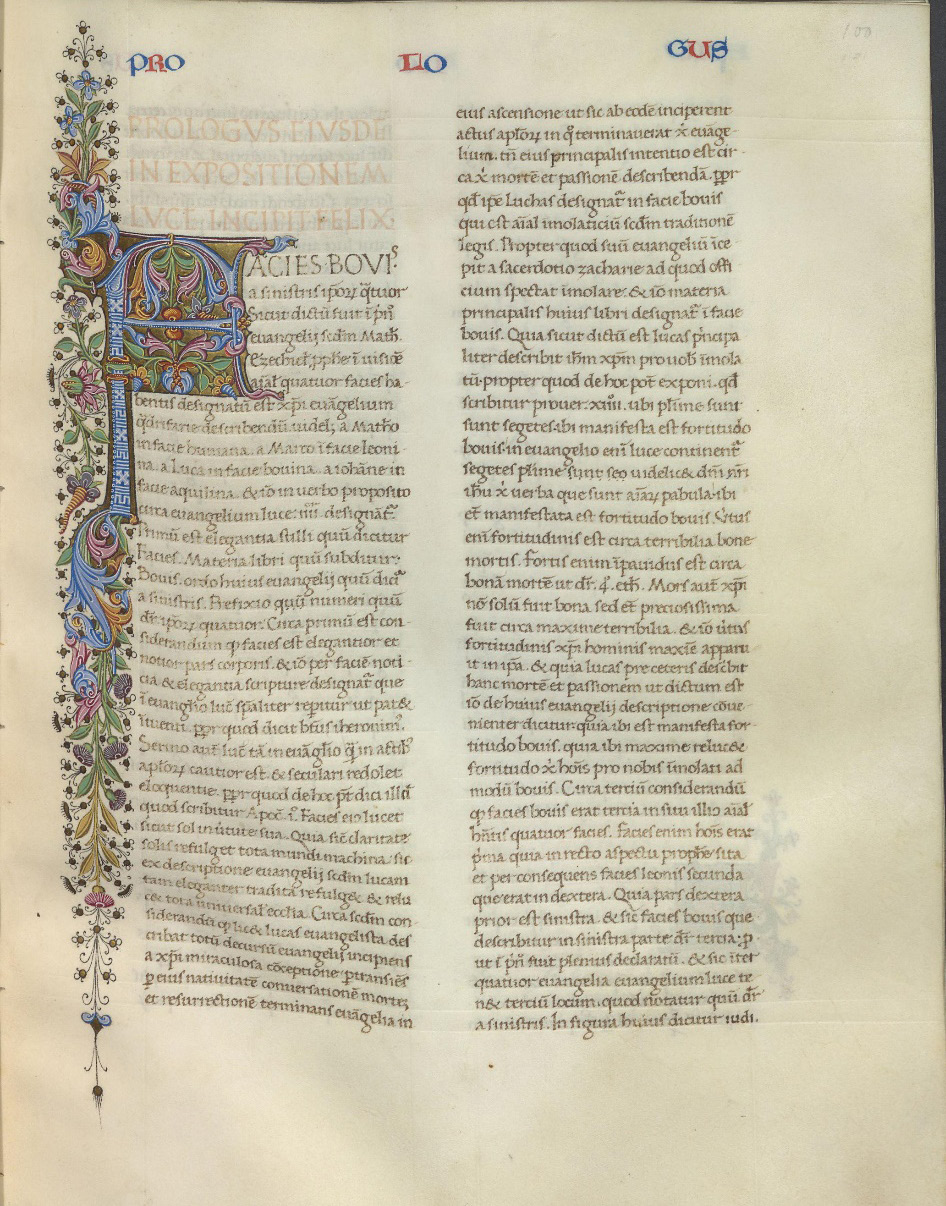 PRO LO GUS
100
PROLOGVS EIVSDĒ
IN EXPOSITIONEM
LVCE. INCIPIT FELIX
FACIES·BOVIˢ·
a sinistris ipoꝝ q̄tuor
Sicut dictū fuit ī prī
euangelij scdm Math.
Ezechiel, pphe ī uisiōe
aīal' quatuor facies ha-
bentis designatū est xp̄i euāgelium
q̄drifarie describendū uidel; a Matho
in facie humana. a Marco ī facie leoni-
na. a Luca in facie bouina. a iohāne in
facie aquilina. & iō in uerbo proposito
circa euangelium luce: iiii. designāt.
Primū est elegantia stilli quū dicitur
Facies. Materia libri quū subditur:
Bouis. ordo huius euangelij quū dicit̄
a sinistris. Prefixio quū numeri quū
dr̄ ipoꝝ quatuor. Circa primū est con-
siderandum ꝙ facies est elegantior et
notior pars corporis. & iō per faciē noti-
cia & elegantia scripture designat̄ que
ī euangl'io luc̄ sp̄aliter reperitur ut pat&
ītuenti. ꝓpr quod dicit bt̄us iheronim9.
Sermo aut̄ luc̄ tā in euāgl'io q̄ in actib9
apl'oꝝ cautior est. & seculari redolet
eloquentie. ꝓpr quod de hoc pt̄ dici illd̄
quod scribitur Apoc̄. ī. Facies ei9 lucet
sicut sol in uirtute sua. Quia sic̄ claritate
solis refulget tota mundi machina. sic
ex descriptione euangelij scdm lucam
tam eleganter tradita refulg& & relu
c& tota uniuersal' ecclia. Circa scdm con-
siderandū ꝙ lic& lucas euangelista des
cribat totū decursū euangelij incipiens
a xp̄i miraculosa cōceptione ꝑtransiēs
ꝑ eius natiuitatē conuersationē mortez
et resurrectionē terminans euāgelia in
eius ascensione ut sic ab eodē inciperent
actus apl'oꝝ in q̊ terminauerat x̄ euāge-
lium. tn̄ eius principalis intentio est cir-
ca x̄ mortē et passionē describendā. ꝓpr
qd̄ ip̄e Luchas designat̄ in facie bouis
qui est aīal imolaticiū scdm traditionē
legis. Propter quod suū euangeliū īce
pit a sacerdotio zacharie ad quod offi
cium spectat īmolare. & iō materia
principalis huius libri designat̄ ī facie
bouis. Quia sicut dictū est lucas prīcipa
liter describit ihm xp̄m pro nob̄ īmola
tū. propter quod de hoc pot̄ exponi. qd̄
scribitur prouer. xiiii. ubi plīme sunt
sunt segetes ibi manifesta est fortitudo
bouis. in euangelio enī luce continent̄
segetes plīme sunt seo uidelic& dn̄i nr̄i
ihū x̄ uerba que sunt aīaꝝ pabula. ibi
et̄ manifestata est fortitudo bouis. Uītus
enī fortitudinis est circa terribilia bone
mortis. Fortis enim īpauidus est circa
bonā mortē ut dr̄. 4. eth. Mors aut̄ xp̄i
nō solū fuit bona sed et̄ preciosissima
fuit circa maxime terribilia. & iō uītus
fortitudinis xp̄i hominis maxīe apparu
it in ip̄a. & quia lucas pre ceteris describit
hanc mortē et passionem ut dictum est
iō de huius euangelij descriptione cōue-
nienter dicitur. quia ibi est manifesta for-
titudo bouis. quia ibi maxime reluc&
fortitudo x̄ hoīs pro nobis īmolati ad
modū bouis. Circa terciū considerandū
ꝙ facies bouis erat tercia in situ illi9 aīal'
hn̄tis quatuor facies. Facies enim hoīs erat
prīma quia in recto aspectu prophe sita
et per consequens facies leonis secunda
que erat in dextera. Quia pars dextera
prior est sinistra. & sic facies bouis que
describitur in sinistra parte dr̄ tercia: ꝓ
ut ī prī fuit plenius declaratū. & sic īter
quatuor euangelia euangelium luce te
n& terciū locum. quod notatur quū dr̄
a sinistris. In figura huius dicitur iudi.